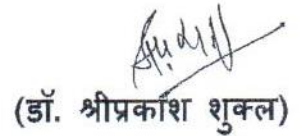 (डॉ. श्रीप्रकाश शुक्ल)